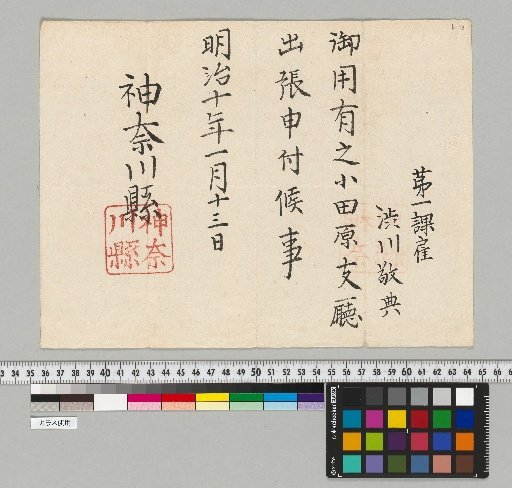 第一課雇
渋川敬典
御用有之小田原支廳
出張申付候事
明治十年一月十三日
神奈川縣
神奈
川縣
33 34 35 36 37 38 39 40 41 42 43 44 45 46 47 48 49 50 51 52 53 54 55 56 57 58 59 60 61 62 63 64 65 66